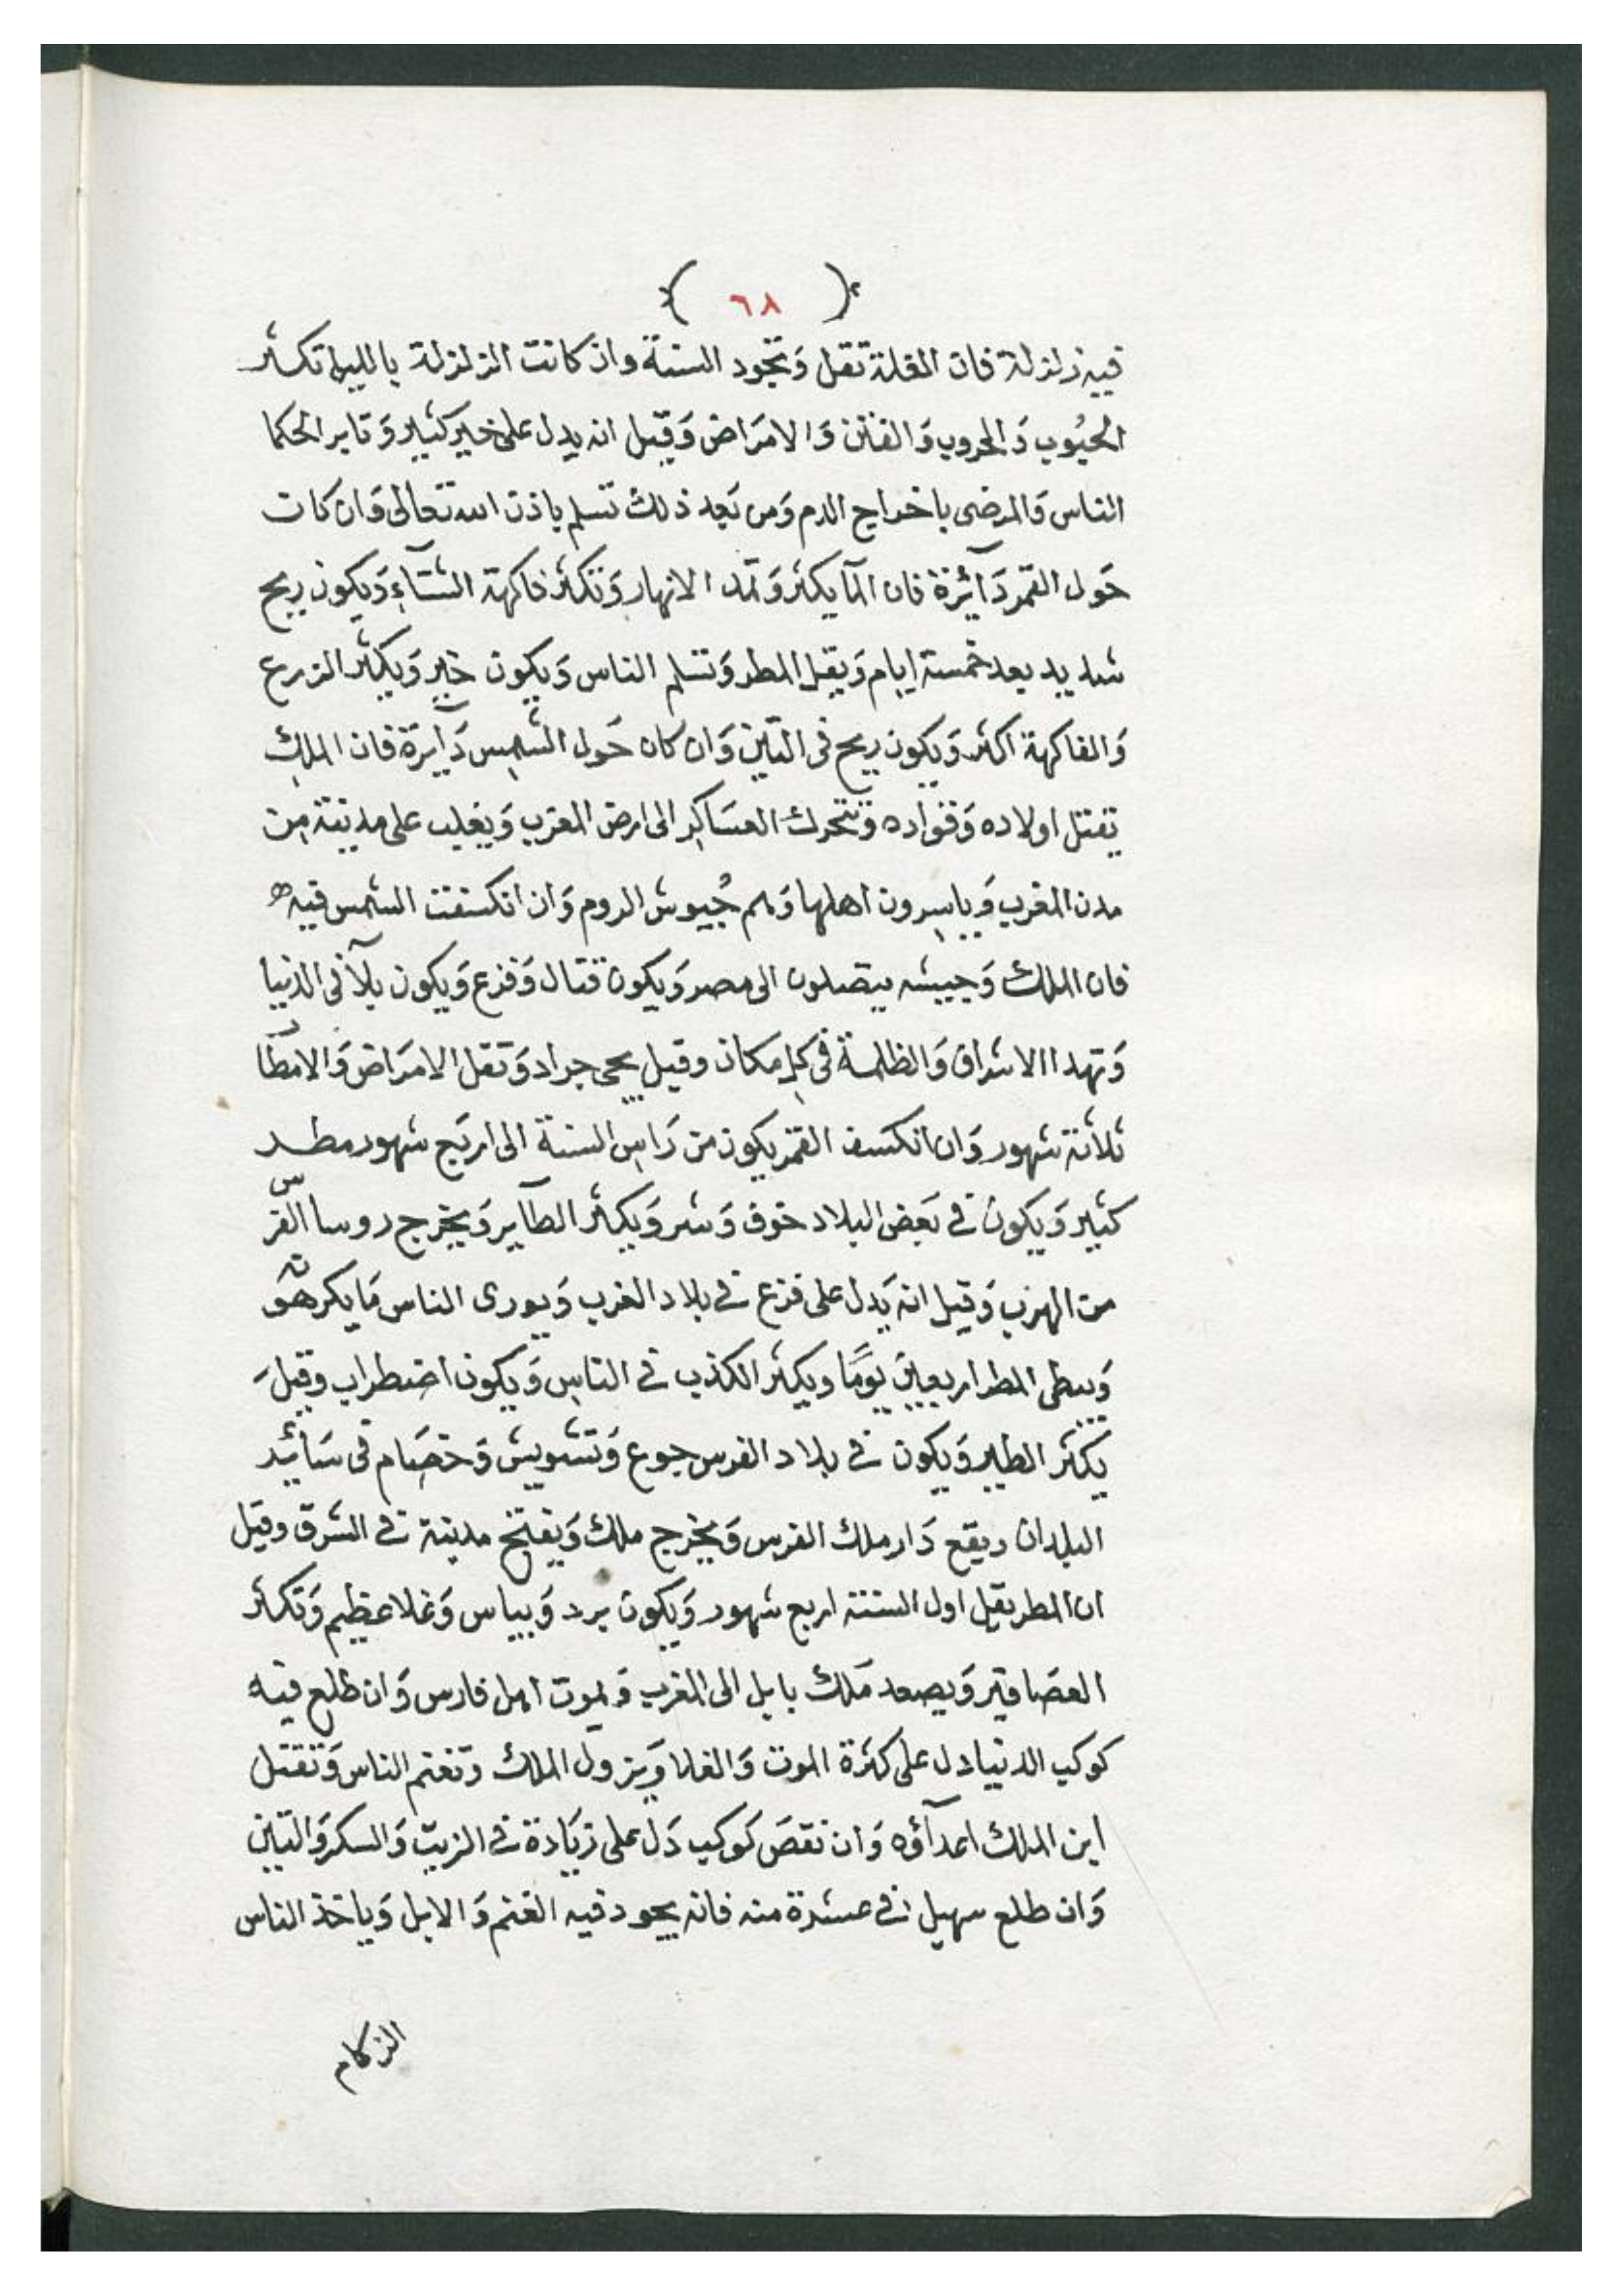 ( ٦٨ )
فيه زلزلة فان الغلة تقل وَتجود السنة وان كانت الزلزلة بالليل تكثر
الحبُوب وَالحروب وَالفتن وَالامرَاض وَقيل انه يدل على خير كثير وَتامر الحكما
الناس وَالمرضى باخراج الدم وَمن بَعد ذلك تسلم باذن الله تعالى وَان كان
حَول القمر دَآئرة فان المآ يكثر وَتمد الانهار وَتكثر فاكهة الشتَآءِ وَيكون ريح
شديد بعد خمسة ايام وَيقل المطر وَتسلم الناس وَيكون خير وَيكثر الزرع
وَالفاكهة اكثر وَيكون ريح فى التين وَان كان حَول الشمس دَآيرة فان الملك
تقتل اولاده وَقواده وَتتحرك العسَاكر الى ارض المغرب وَيغلب على مدينة من
مدن المغرب وَياسرون اهلها وَهم جُيوش الروم وَان انكسفت الشمس فيه
فان الملك وَجيشه يتصلون الى مصر وَيكون قتال وَفزع وَيكون بلآ فى الدنيا
وَتهدا الاشراق وَالظلمة فى كل مكان وقيل يجى جراد وَتقل الامرَاض وَالامطآر
ثلاثة شهور وَان انكسَف القمر يكون من رَاس السنة الى اربَع شهور مطر
كثير وَيكون فى بَعض البلاد خوف وَشر وَيكثر الطآير وَيخرج روسا الفرس
من الهرب وَقيل انه يَدل على فزع فى بلاد الغرب وَيورى الناس مَا يكرهوَنه
وَيبطى المطر اربعين يَومًا ويكثر الكذب فى الناس وَيكون اضطراب وقيلَ
يكثر الطير وَيكون فى بلاد الفرس جوع وَتشويش وَخصَام فى سَائر
البلدان ويقع دَار ملك الفرس وَيخرج ملك وَيفتح مدينة فى الشرق وقيل
ان المطر يقل اول السنة اربع شهور وَيكون برد وَيباس وَغلا عظيم وَتكثر
العصَافير وَيصعد مَلك بابل الى المغرب وَيموت اهل فارس وَان طلع فيه
كوكب الدنيا دل على كثرة الموت وَالغلا وَيزول الملك وتغتم الناس وَتقتل
ابن الملك اعدآؤه وَان نقصَ كَوكب دَل على زيَادة فى الزيت وَالسكر وَالتين
وَان طلع سهيل فى عشرة منه فانه يجود فيه الغنم وَالابل وَياخذ الناس
الزكام